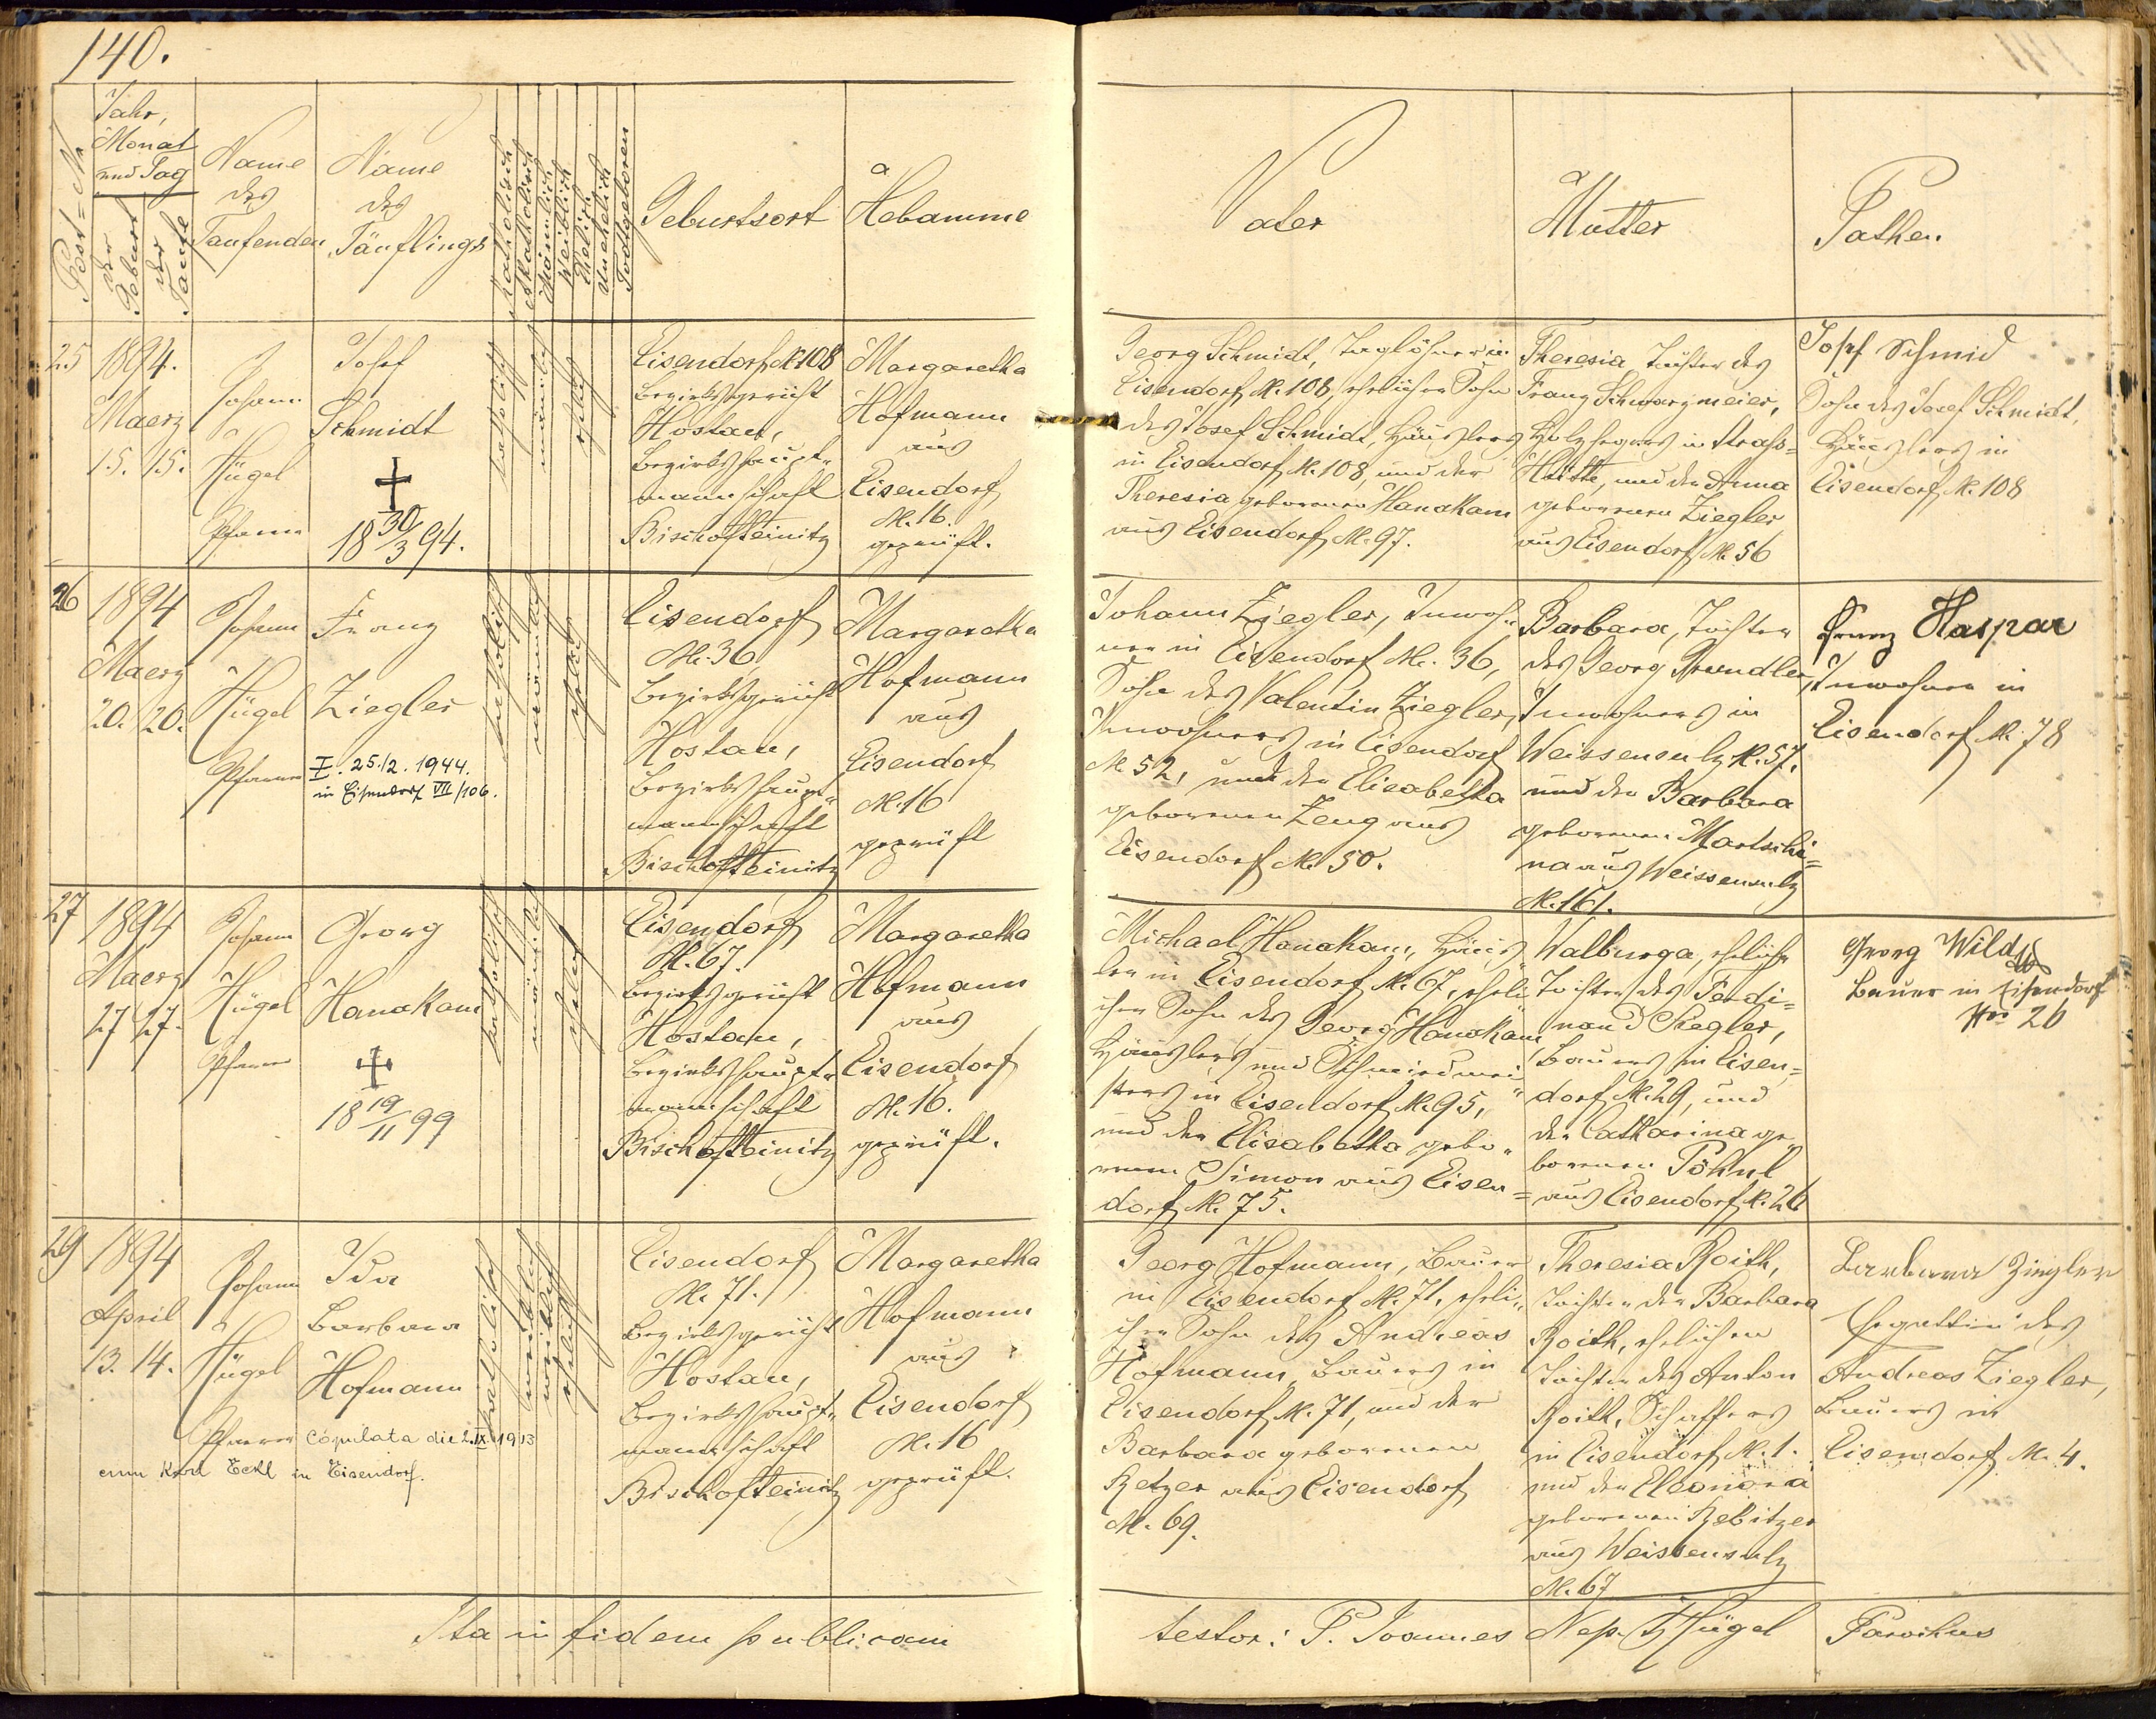 140.
Post=Nr
Jahr,
Monat
und Tag
der Geburt
der Taufe
Name
des
Taufenden
Name
des
Täuflings
Katholisch
Akatholisch
Männlich
Weiblich
Ehelich
Unehelich
Todtgeboren
Geburtsort
Hebamme
Vater
Mutter
Pathen
25
1894.
Maerz
15. 15.
Johann
Hügel
Pfarrer
Josef
Schmidt
†
18 30/3 94.
katholisch
männlich
ehelich
Eisendorf Nr. 108
Bezirksgericht
Hostau,
Bezirkshaupt-
mannschaft
Bischofteinitz
Margaretha
Hofmann
aus
Eisendorf
Nr. 16.
geprüft.
Georg Schmidt, Taglöhner in
Eisendorf Nr. 108, ehelicher Sohn
des Josef Schmidt, Häuslers
in Eisendorf Nr. 108, und der
Theresia geborenen Hanakam
aus Eisendorf Nr. 97.
Theresia Tochter des
Franz Schwarzmeier,
Holzhegers in Strass=
Hütte, und der Anna
geborenen Ziegler
aus Eisendorf Nr. 56
Josef Schmid
Sohn des Josef Schmidt,
Häuslers in
Eisendorf Nr. 108
26
1894
Maerz
20. 20.
Johann
Hügel
Pfarrer
Franz
Ziegler
†. 25./2. 1944.
in Eisendorf VII/106.
katholisch
männlich
ehelich
Eisendorf
Nr. 36
Bezirksgericht
Hostau,
Bezirkshaupt-
mannschaft
Bischofteinitz
Margaretha
Hofmann
aus
Eisendorf
Nr. 16
geprüft
Johann Ziegler, Inwoh-
ner in Eisendorf Nr. 36,
Sohn des Valentin Ziegler,
Inwohners in Eisendorf
Nr 52, und der Elisabetha
geborenen Zeug aus
Eisendorf Nr. 50.
Barbara, Tochter
des Georg
Inwohners in
Weissensulz Nr. 57.
und der Barbara
geborenen Martschi=
na aus Weissensulz
Nr. 161.
Franz Kaspar
Inwohner in
Eisendorf Nr. 78
27
1894
Maerz
27 27.
Johann
Hügel
Pfarrer
Georg
Hanakam
†
18 19/11 99
katholisch
männlich
ehelich
Eisendorf
Nr. 67.
Bezirksgericht
Hostau,
Bezirkshaupt-
mannschaft
Bischofteinitz
Margaretha
Hofmann
aus
Eisendorf
Nr. 16.
geprüft.
Michael Hanakam, Häus-
ler in Eisendorf Nr. 67, eheli-
cher Sohn des Georg Hanakam,
Häuslers und Schmiedmei-
sters in Eisendorf Nr. 95,
und der Elisabetha gebo-
renen Simon aus Eisen=
dorf Nr. 75.
Walburga, eheliche
Tochter des Ferdi=
nand Ziegler,
Bauers in Eisen=
dorf Nr. 29, und
der Catharina ge-
borenen Pöhnl
aus Eisendorf Nr. 26
Georg Wild
Bauer in Eisendorf
Nro 26
29
1894
April
13. 14.
Johann
Hügel
Pfarrer
Ida
Barbara
Hofmann
Copulata die 2.IX.1913
cum Karl Eckl in Eisendorf.
katholisch
weiblich
ehelich
Eisendorf
Nr. 71.
Bezirksgericht
Hostau,
Bezirkshaupt-
mannschaft
Bischofteinitz
Margaretha
Hofmann
aus
Eisendorf
Nr. 16
geprüft.
Georg Hofmann, Bauer
in Eisendorf Nr. 71, eheli-
cher Sohn des Andreas
Hofmann, Bauers in
Eisendorf Nr. 71, und der
Barbara geborenen
Retzer aus Eisendorf
Nr. 69.
Theresia Roith,
Tochter der Barbara
Roith, ehelichen
Tochter des Anton
Roith, Schaffers
in Eisendorf Nr. 1.
und der Eleonora
geborenen Rebitzer
aus Weissensulz
Nr. 67
Barbara Ziegler
Ehegattin des
Andreas Ziegler,
Bauers in
Eisendorf Nr. 4.
Ita in fidem publicam testor: P. Joannes Nep. Hügel Parochus